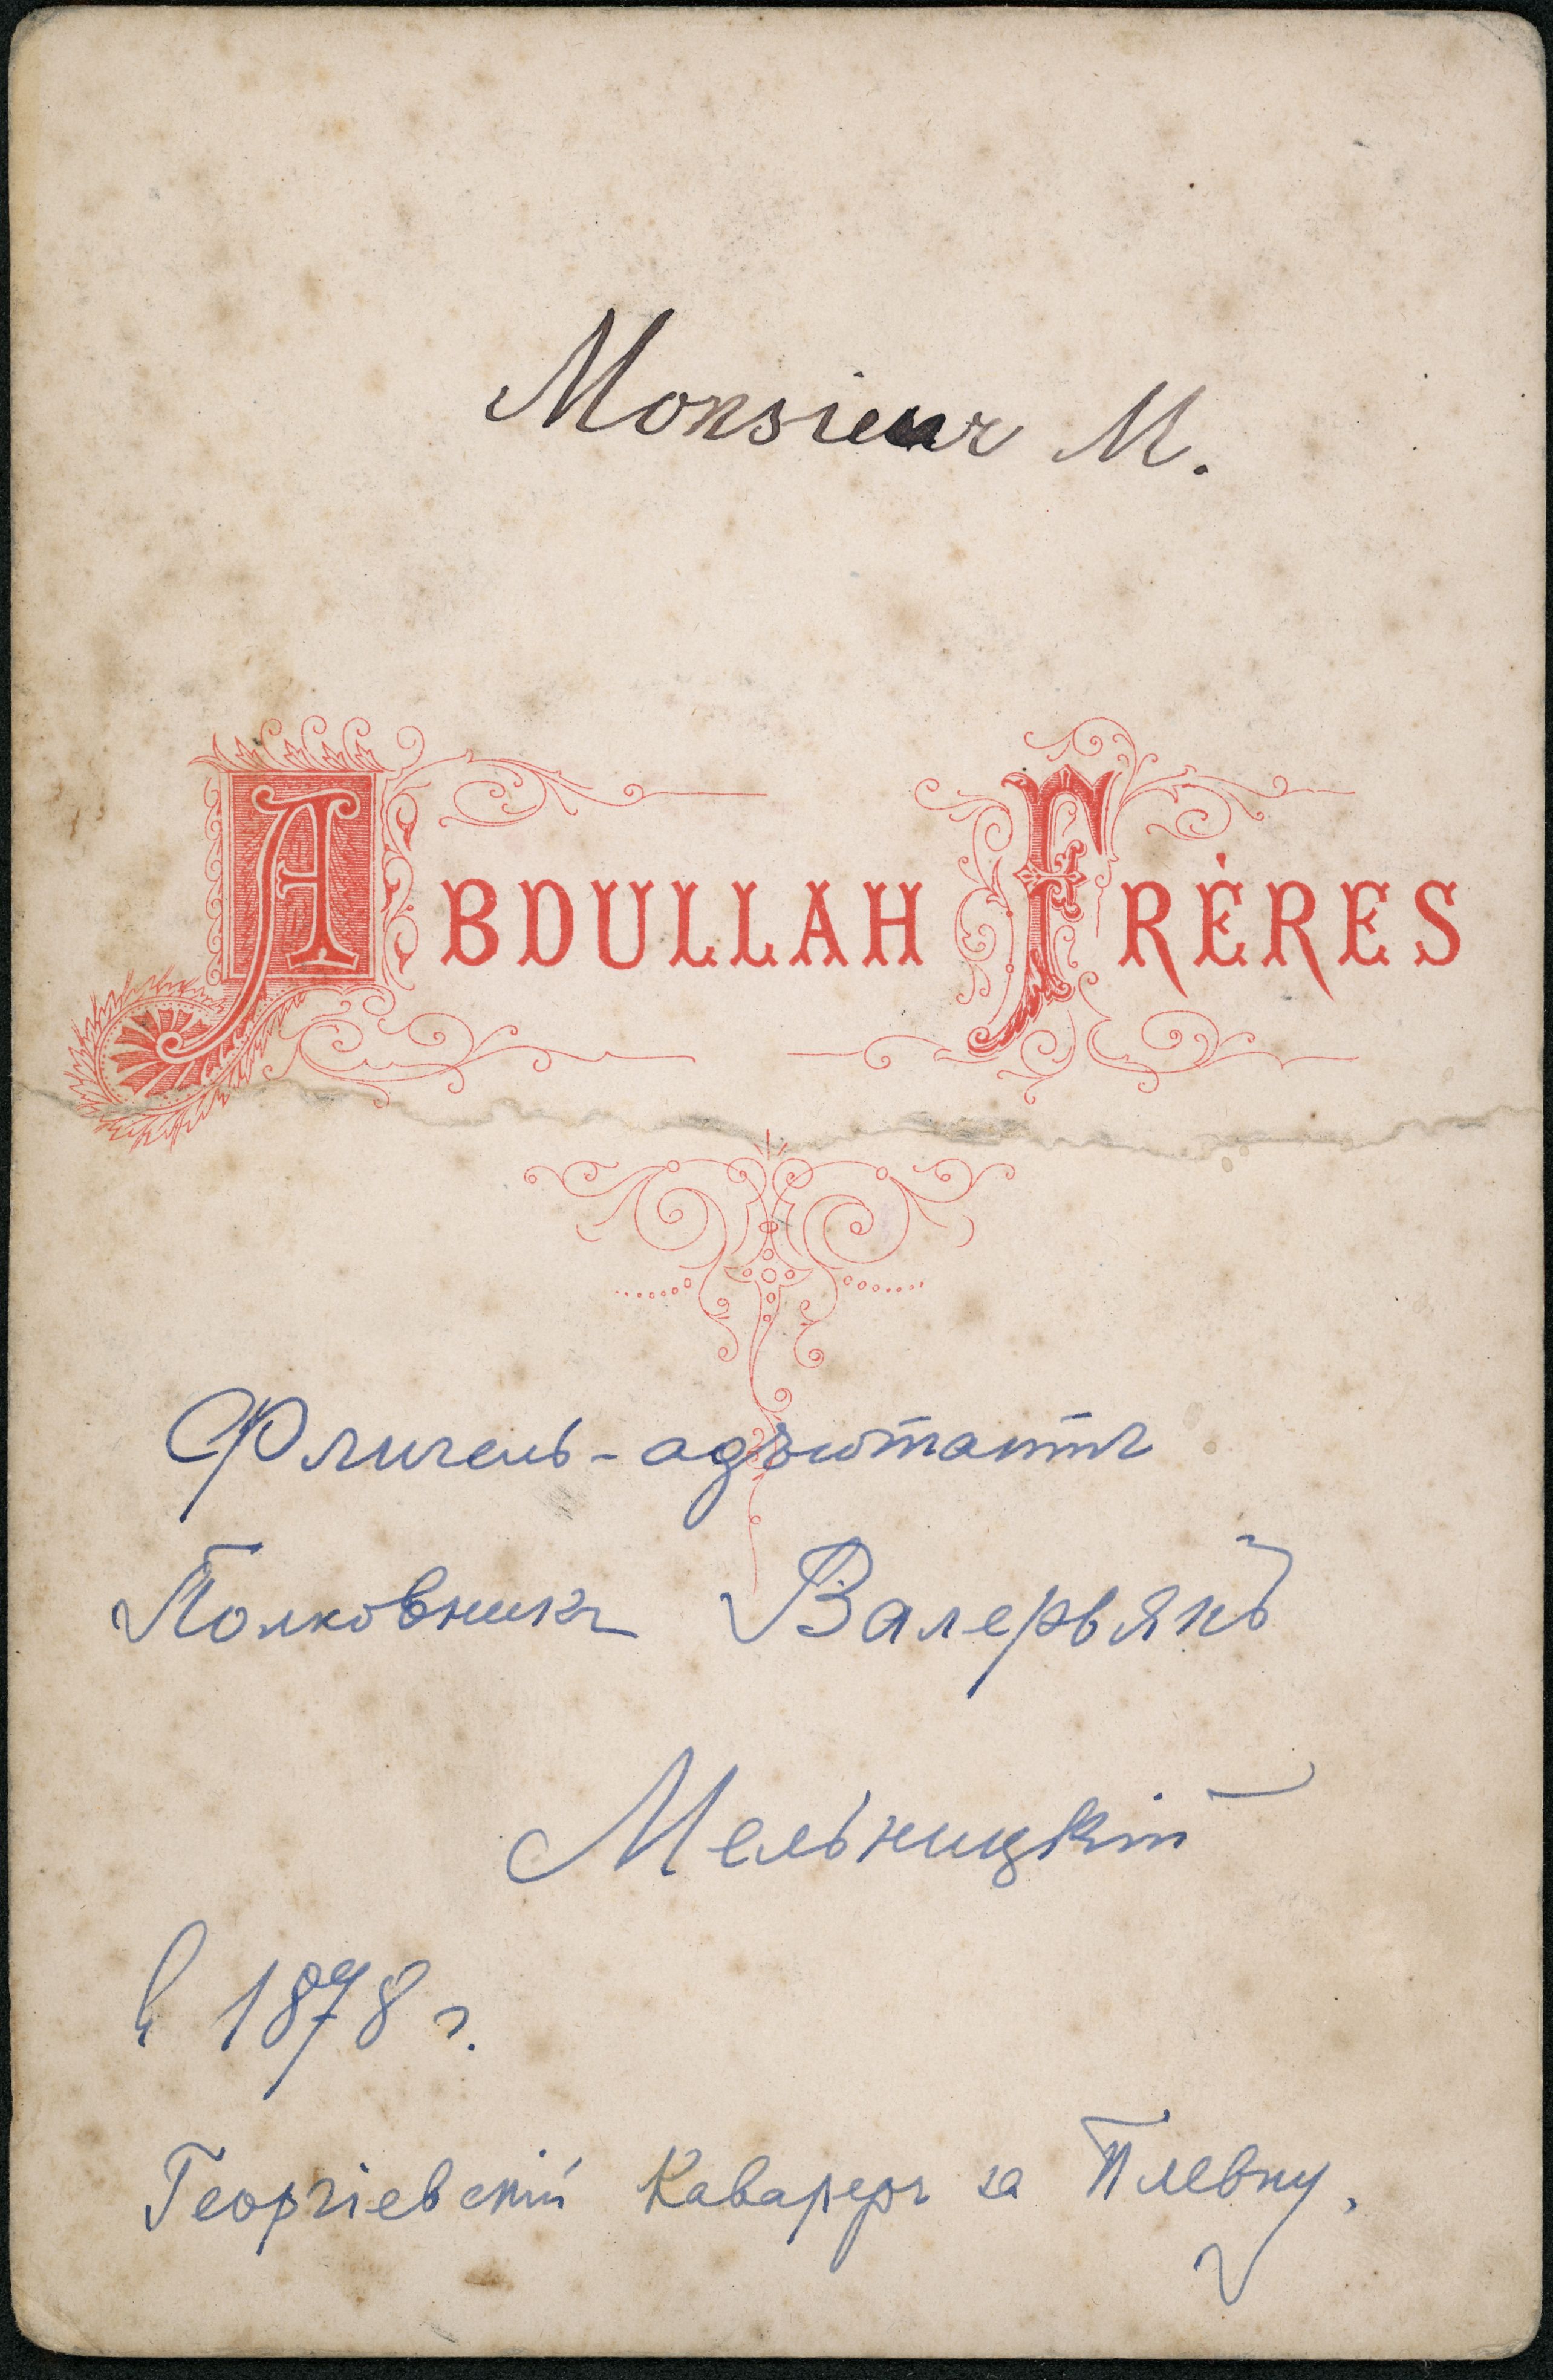 Monsieur M.
ABDULLAH FRÈRES
Флигель-адъютантъ
Полковникъ Валерьянъ
Мельницкій
въ 1878 г.
Георгіевскій Кавалеръ за Плевну.